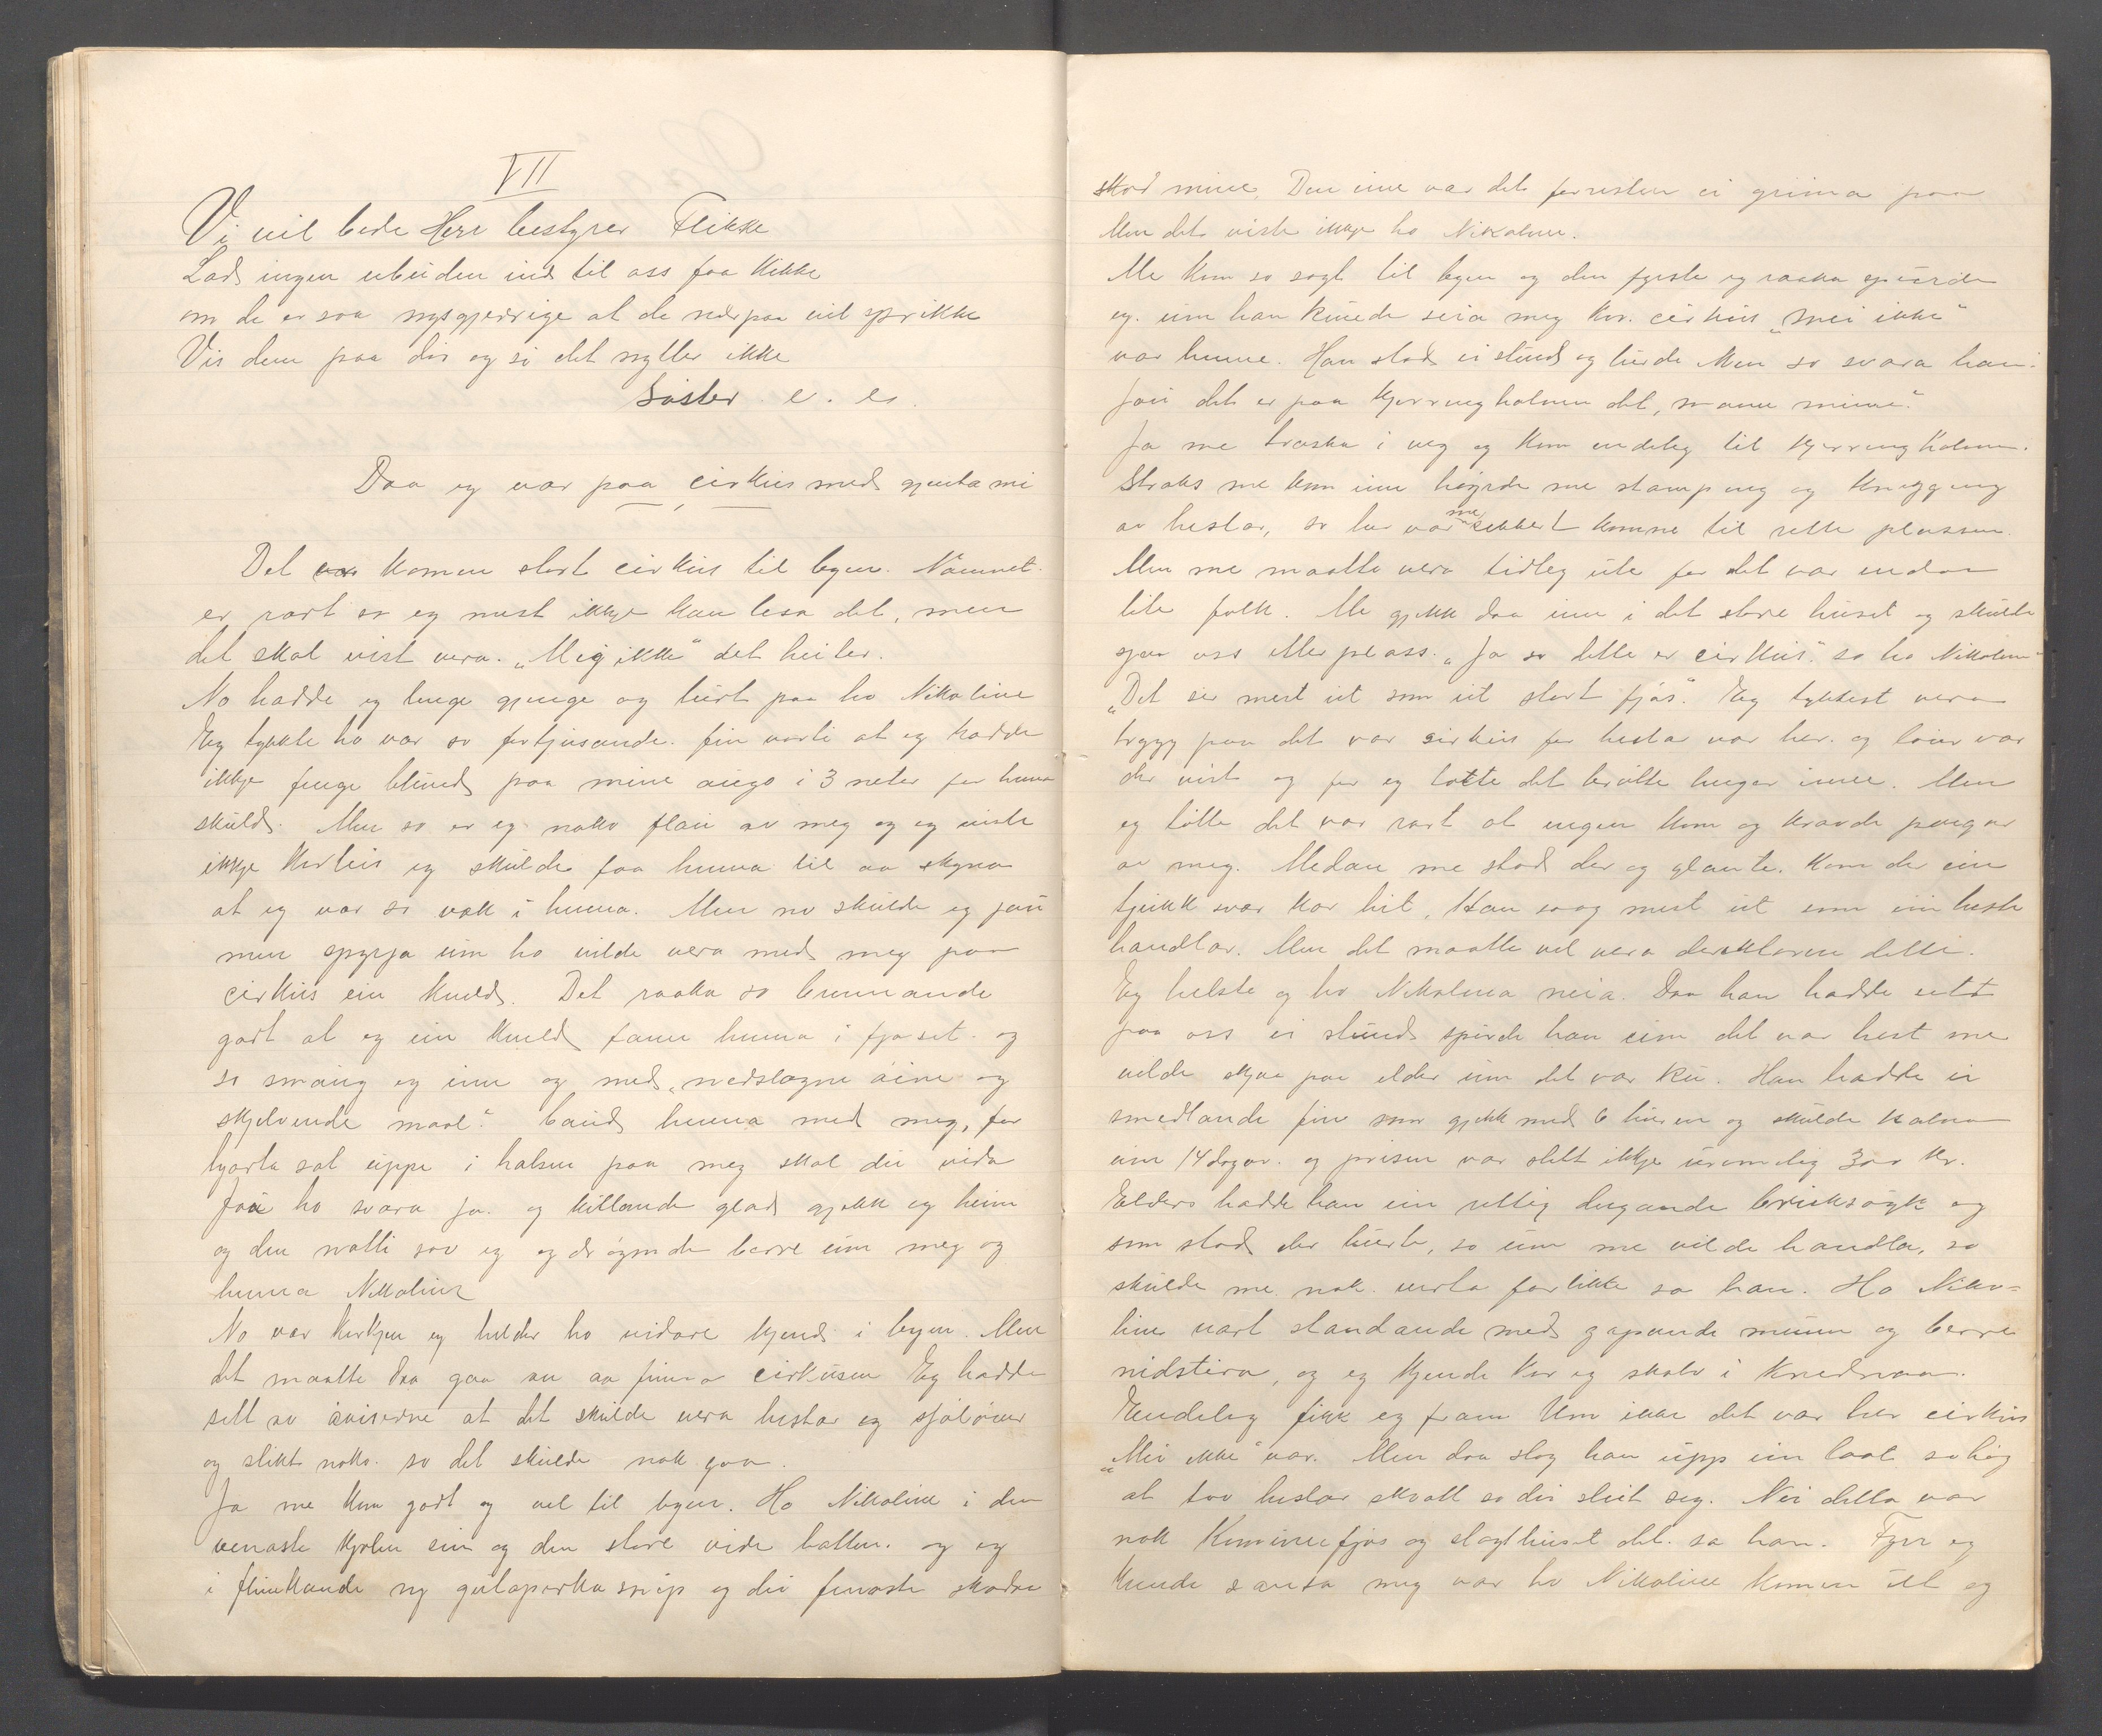 VII
Vi vil bede Herr bestyrer Flikke
Lad ingen ubuden ind til oss faa kikke
om de er saa nysgjerrige at de nærpaa vil sprikke
Vis dem paa dör og si det nytter ikke
Söster. e. e.
Daa eg var paa cirkus med gjenta mi
Det var komen stort cirkus til byen. Namnet
er rart so eg mest ikkje kan lesa det, men
det skal vist vera. „Mig ikke" det heiter.
No hadde eg lenge gjenge og lurt paa ho Nikoline
Eg tykkte ho var so fortjusande fin vorti at eg hadde
ikkje fenge blund paa mine augo i 3 neter for henna
skuld. Men so er eg noko flau av meg og eg viste
ikkje korleis eg skulde faa henna til aa skyna
at eg var so vak i henna. Men no skulde eg jau
men spyrja um ho vilde vera med meg paa
cirkus ein kveld. Det raaka so bennande
godt at eg ein kveld fann henna i fjoset og
so smaug eg inn og med „nedslagne öine og
skjelvende maal" baud henna med meg, for
hjarta sat uppe i halsen paa meg skal du vida
Jau ho svara ja. og kitlande glad gjekk eg heim
og den natti sov eg og dröymde berre um meg og
henna Nikoline
No var korkjen eg helder ho vidare kjend i byen. Men
det maatte daa gaa an aa finna cirkusen Eg hadde
sett av aviserne at det skulde vera hestar og sjölöver
og slikt noko. so det skulde nok gaa.
Ja me kom godt og vel til byen. Ho Nikoline i den
venaste kjolen sin og den store vide hatten. og eg
i flunkande ny gulaparka snip og dei finaste skorne
skod mine. Den eine var det forresten ei grima paa
Men det viste ikkje ho Nikoline.
Me kom so sagt til byen og den fyrste eg raaka spurde
eg. um han kunde seia meg kor. cirkus „mei ikke"
var henne. Han stod ei stund og lurde Men so svara han:
Jau det er paa Kjerringholmen det, mann minn".
Ja me traska i veg og kom endeleg til Kjerringholmen.
Straks me kom inn höyrde me stamping og knegging
av hestar, so her var me sikkert komne til rette plassen.
Men me maatte vera tidleg ute for det var endaa
lite folk. Me gjekk daa inn i det store huset og skulde
sjaa oss etter plass. „Ja so dette er cirkus". sa ho Nikoline
„Det ser mest ut som eit stort fjös". Eg tyktest vera
trygg paa det var cirkus for hestar var her. og löver var
der vist og for eg totte det brölte lenger inne. Men
eg totte det var rart at ingen kom og kravde pengar
av meg. Medan me stod der og glante. kom der ein
tjukk svær kar hit, Han saag mest ut som ein heste
handlar. Men det maatte vel vera derektören dette.
Eg helste og ho Nikolina neia. Daa han hadde sett
paa oss ei stund spurde han um det var hest me
vilde sjaa paa elder um det var ku. Han hadde ei
smedlande fin som gjekk med 6 litern og skulde kalva
um 14 dagar. og prisen var slett ikkje urimeleg 300 kr.
Elders hadde han ein rettig dugande bruksöyk og
som stod der burte, so um me vilde handla, so
skulde me nok verta forlikte sa han. Ho Niko=
line vart standande med gapande munn og berre
nidstira, og eg kjende kor eg skalv i knednaa.
Endeleg fikk eg fram Um ikke det var her cirkus
„Mei ikke" var. Men daa slog han upp ein laatt so hög
at tvo hestar skvatt so dei sleit seg. Nei detta var
nok Komunefjös og slagthuset det. sa han. Fyrr eg
kunde sansa meg var ho Nikoline komen ut og